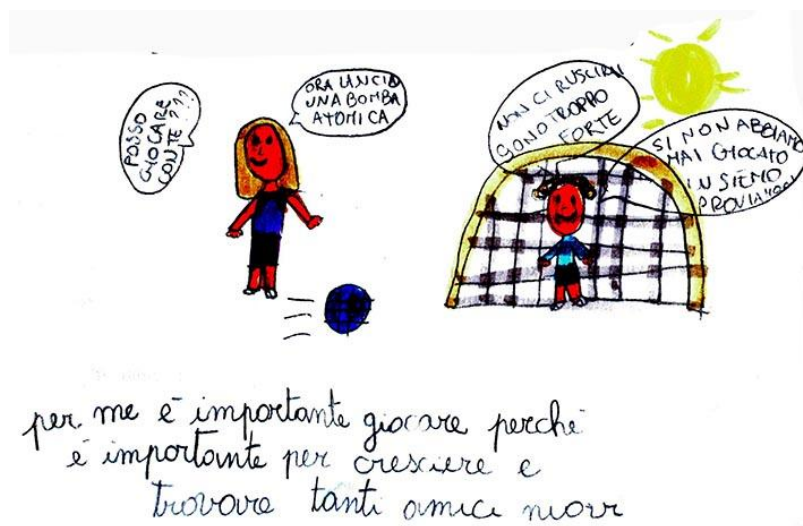 POSSO
GIOCARE
CON TE???
ORA LANCIO
UNA BOMBA
ATOMICA
NON CI RUSCIRAI
SONO TROPPO
FORTE
SI NON ABBIAMO
MAI GIOCATO
INSIEMO
PROVIAMO
per me è importante giocare perché
è importante per cresciere e
trovare tanti amici